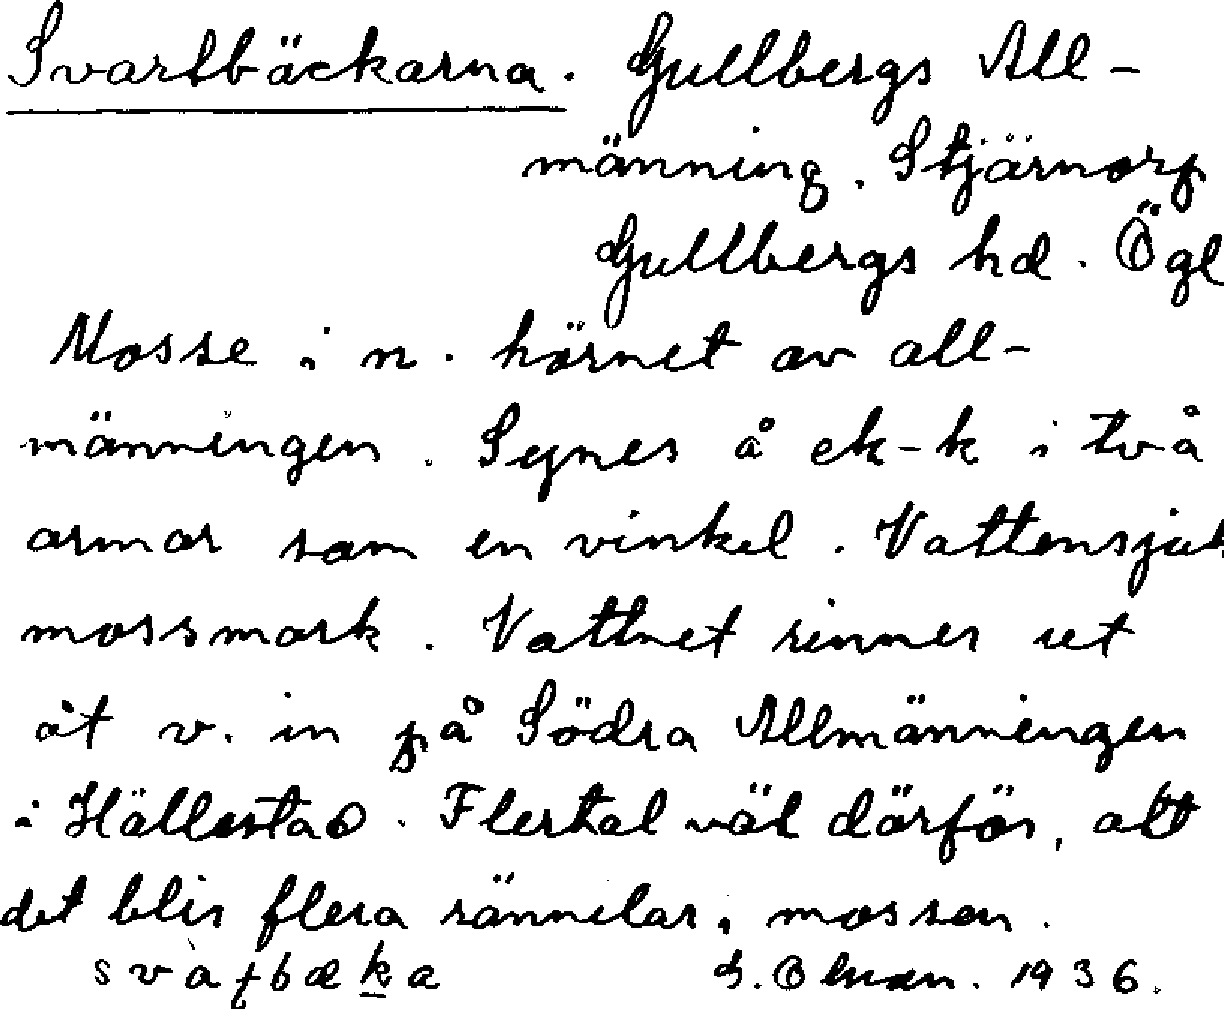 Svartbäckarna. Gullbergs All-
männing. Stjärnorp
Gullbergs hd. Ögl
Mosse i n. hörnet av all-
männingen. Synes å ek-k i två
armar som en vinkel. Vattensjuk
mossmark. Vattnet rinner ut
åt v. in på Södra Allmänningen
i Hällestad. Flertal väl därför, att
det blir flera rännilar i mossen.
1936.